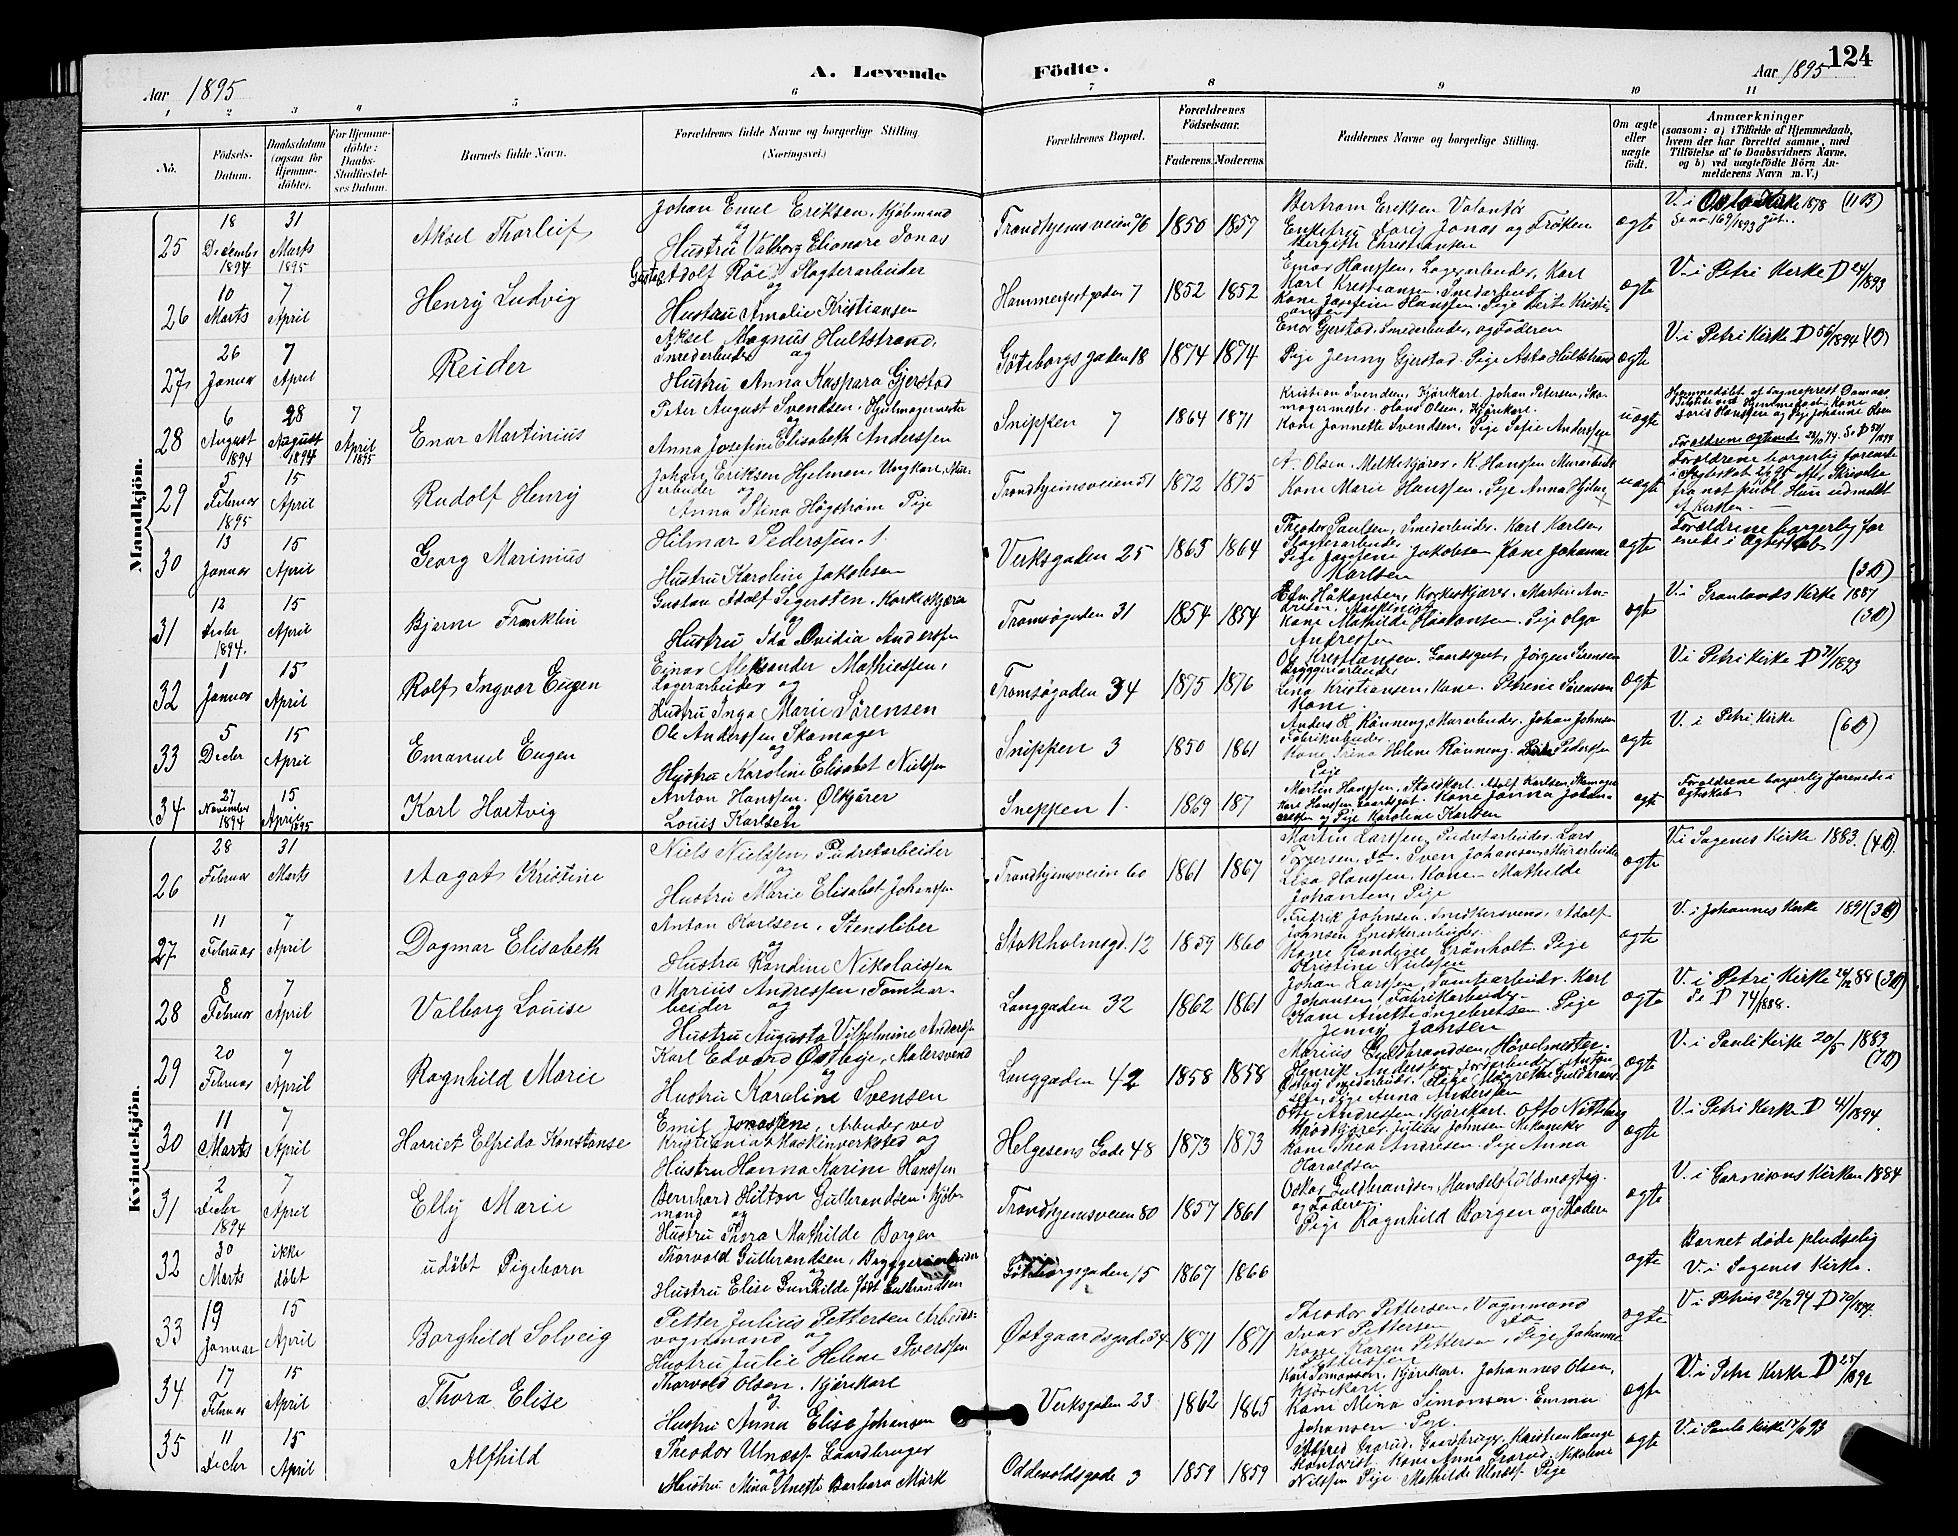 Aar 1895
A. Levende Födte.
Aar 1895
124
1 2 3 4 5 6 7 8 9 10 11
No.
Födsels-Datum.
Daabsdatum (ogsaa for Hjemmedöbte).
For Hjemmedöbte: Daabs-Stadfæstelses Datum.
Barnets fulde Navn.
Forældrenes fulde Navne og borgerlige Stilling.
(Næringsvei.)
Forældrenes Bopæl.
Forældrenes Födselsaar.
Faderens. Moderens.
Faddernes Navne og borgerlige Stilling.
Om ægte eller uægte födt.
Anmærkninger
(saasom: a) i Tilfælde af Hjemmedaab, hvem der har forrettet samme, med Tilföielse af to Daabsvidners Navne, og b) ved uægtefödte Börn Anmelderens Navn m. V.)
Mandkjön.
25 18 Decembr 1894 31 Marts 1895 Aksel Thorleif
Johan Emil Eriksen, Kjöbmand
og
Hustru Valborg Elionore Jonas
Trondhjemsveien 76 1850 1857
Bertram Eriksen Volontør
Enkefru Doris Jonas og Frøken
Bergith Christiansen
ægte
V. i Oslo Kirke 1878 (11 B)
26 10 Marts 7 April Henry Ludvig
Gustav Adolf Röe, Slagterarbeider
og
Hustru Amalie Kristiansen
Hammerfestgaden 7 1852 1852
Einar Hanssen, Lagerarbeider, Karl
Karl Kristiansen, Smedarbeider
Kone Josefine Hanssen, Pige Berte Kristiansen
ægte
V. i Petri Kirke D 24/1893
27 26 Januar 7 April Reider
Aksel Magnus Hultstrand,
Smedarbeider og
Hustru Anna Kaspara Gjerstad
Göteborgs gaden 18 1874 1874
Enor Gjerstad, Smedarbeider, og Faderen
Pige Jenny Gjerstad. Pige Asta Hultstrand
ægte
V. i Petri Kirke D 56/1894 (1D)
28 6 August 1894 28 August 1894 7 April 1895 Enar Martinius
Peter August Svendsen, Hjulmagermester
og
Anna Josefine Elisabeth Anderssen
Snippen 7 1864 1871
Kristian Svendsen, Kjörekarl. Johan Petersen, Skomagermester. Hans Olsen, Kjörekarl.
Kone Jannette Svendsen, Pige Sofie Anderssen
uægte
Hjemmedöbt af Sogneprest
29 5 Februar 1895 15 April Rudolf Henry
Johan Eriksen Hjelman, Ungkarl, Murarbeider og
Anna Stina Högström Pige
Trondhjemsveien 51 1872 1875
A. Olsen, Melkekjörer, K. Hanssen Murarbeider
Kone Marie Hanssen, Pige Anna Hjelm
uægte
Forældrene borgerlig forenede
30 13 Januar 15 April Georg Marinius
Hilmar Pederssen
Hustru Karoline Jakobsen
Verksgaden 25 1865 1864
Theodor Paulsen, Smedarbeider. Karl Karlsen,
Slagterarbeider
Pige Josefine Jakobsen Kone Johanne
Karlsen
ægte
Forældrene borgerlig forenede i Ægteskab
(3D)
31 12 Decbr 1894. 15 April Bjarne Franklin
Gustav Adolf Segersten, Korkeskjærer
og
Hustru Ida Ovidia Anderssen
Tromsögaden 31 1854 1854
Edv. Håkansen, Korkeskjærer, Martin Andresen, Maskinist
Kone Mathilde Håkansen. Pige Olga
Andressen
ægte
V. i Grønlands Kirke 1887
(3D)
32 1 Januar 15 April Rolf Ingvar Eugen
Einar Aleksander Mathiessen,
Lagerarbeider og
Hustru Inga Marie Sörensen
Tromsögaden 34 1875 1876
Ole Kristiansen, Gaardsgut, Jörgen Sörensen
Byggeriarbeider
Lena Kristiansen, Kone. Petrine Sörensen
Kone.
ægte
V. i Petri Kirke D 31/1893
33 5 Decbr 15 April Emanuel Eugen
Ole Anderssen Skomager
og
Hustru Karoline Elisabet Nielssen
Snippen 3 1850 1861
Anders K Rönneng, Murarbeider. Johan Johnsen
Fabrikarbeider.
Kone Trina Helene Rönneng. Pederssen
Pige
ægte
V. i Petri Kirke (6D)
34 27 November 1894 15 April 1895 Karl Hartvig
Anton Hanssen. Ölkjörer
og
Louis Karlsen
Snippen 1. 1869 187
Martin Hanssen, Staldkarl. Adolf Karlsen, Skomager
Karl Hanssen Gaardsgut. Kone Janna Johannessen og Pige Karoline Karlsen
ægte
Forældrene borgerlig forenede i
Ægteskab
Kvindekjön.
26 28 Februar 31 Marts Aagot Kristine
Niels Nielssen, Pudretarbeider
og
Hustru Marie Elisabet Johanssen
Trondhjemsveien 60 1861 1867
Martin Larssen, Pudretarbeider. Lars
Torgersen, do. Sven Johansen, Murarbeider
Lisa Hanssen, Kone. Mathilde
Johansen, Pige
ægte
V. i Sagenes Kirke 1883. (4D)
27 11 Februar 7 April Dagmar Elisabeth
Anton Karlsen, Stensliber
og
Hustru Kandine Nikolaissen
Stokholmsgd. 12 1859 1860
Fredrik Johnsen, Snedkersvend, Adolf
Johnsen Snedkerarbeider.
Kone Kandine Grönholt. Pige
Kristine Nielssen
ægte
V. i Johannes Kirke 1891 (3D)
28 8 Februar 7 April Valborg Louise
Marius Andressen, Tomtearbeider og
Hustru Augusta Vilhelmine Anderssen
Langgaden 32 1862 1861
Johan Larssen, Tomtearbeider. Karl
Johansen, Fabrikarbeider
Kone Anette Ingebretsen. Pige
Jenny Jansen
ægte
V. i Petri Kirke 26/12 88 (3D)
Se D 74/1888.
29 20 Februar 7 April Ragnhild Marie
Karl Edvard Östbye, Malersvend
og
Hustru Karoline Svensen
Langgaden 42 1858 1858
Marius Guldbrandsen, Hövelmester.
Henrik Anderssen, Jordarbeider, Anton
Östby Smedarbeider. Pige Margrethe Guldbrandsen, Pige Anna Anderssen
ægte
V. i Pauls Kirke 20/5 1883
(7D)
30 11 Marts 7 April Harriet Elfrida Konstanse
Emil Jonassen, Arbeider ved
Kristiania Maskinverksted og
Hustru Hanna Karine Hanssen
Helgesens Gade 48 1873 1873
Otto Andressen, Kjörekarl. Otto Nöttberg
Brödkjörer. Julius Johnsen Mekaniker
Kone Thea Andresen. Pige Anna
Haraldsen
ægte
V. i Petri Kirke D 41/1894.
31 2 Decbr 1894 7 April Elly Marie
Bernhard Hilton Gulbrandsen, Kjöbmand og
Hustru Thora Mathilde Borgen
Trondhjemsveien 80 1857 1861
Oskar Guldbrandsen, Handelsfuldmægtig.
og Faderen
Pige Ragnhild Borgen og Moderen
ægte
V. i Garnisons Kirken 1884
32 30 Marts ikke döbt udöbt Pigebarn
Thorvald Gulbrandsen, Byggeriarbeider
og
Hustru Elise Gunhilde födt Gulbrandsen
Göteborgsgaden 15 1867 1866
ægte
Barnet döde pludselig
V. i Sagenes Kirke.
33 19 Januar 15 April Borghild Solveig
Petter Julius Pettersen Arbeids-
vognmand og
Hustru Julie Helene Iverssen
Östgaardsgade 34 1871 1871
Theodor Pettersen, Vognmand
Ivar Pettersen do
Kone Karen Pettersen, Pige Johanne
Pettersen
ægte
V. i Petrus 22/12 94 D 70/1894.
34 17 Februar 15 April Thora Elise
Thorvald Olsen. Kjörekarl
og
Hustru Anna Elise Johansen
Verksgaden 23 1862 1865
Karl Simonsen, Kjörekarl. Johannes Olsen,
Kjörekarl
Kone Mina Simonsen. Emma
Johansen Pige.
ægte
V. i Petri Kirke D 25/1892
35 11 Decbr 15 April Alfhild
Theodor Ulness. Gaardbruger
og
Hustru Mina Anette Barbara Mörk
Oddevoldsgade 3 1859 1859
Alfred Gaarud, Gaardbruger, Kristian Hauge
Kontorist. Kone Anna Gaarud. Nikoline
Nilssen Pige Mathilde Ulness. Pige
ægte
V. i Pauls Kirke 17/6 93